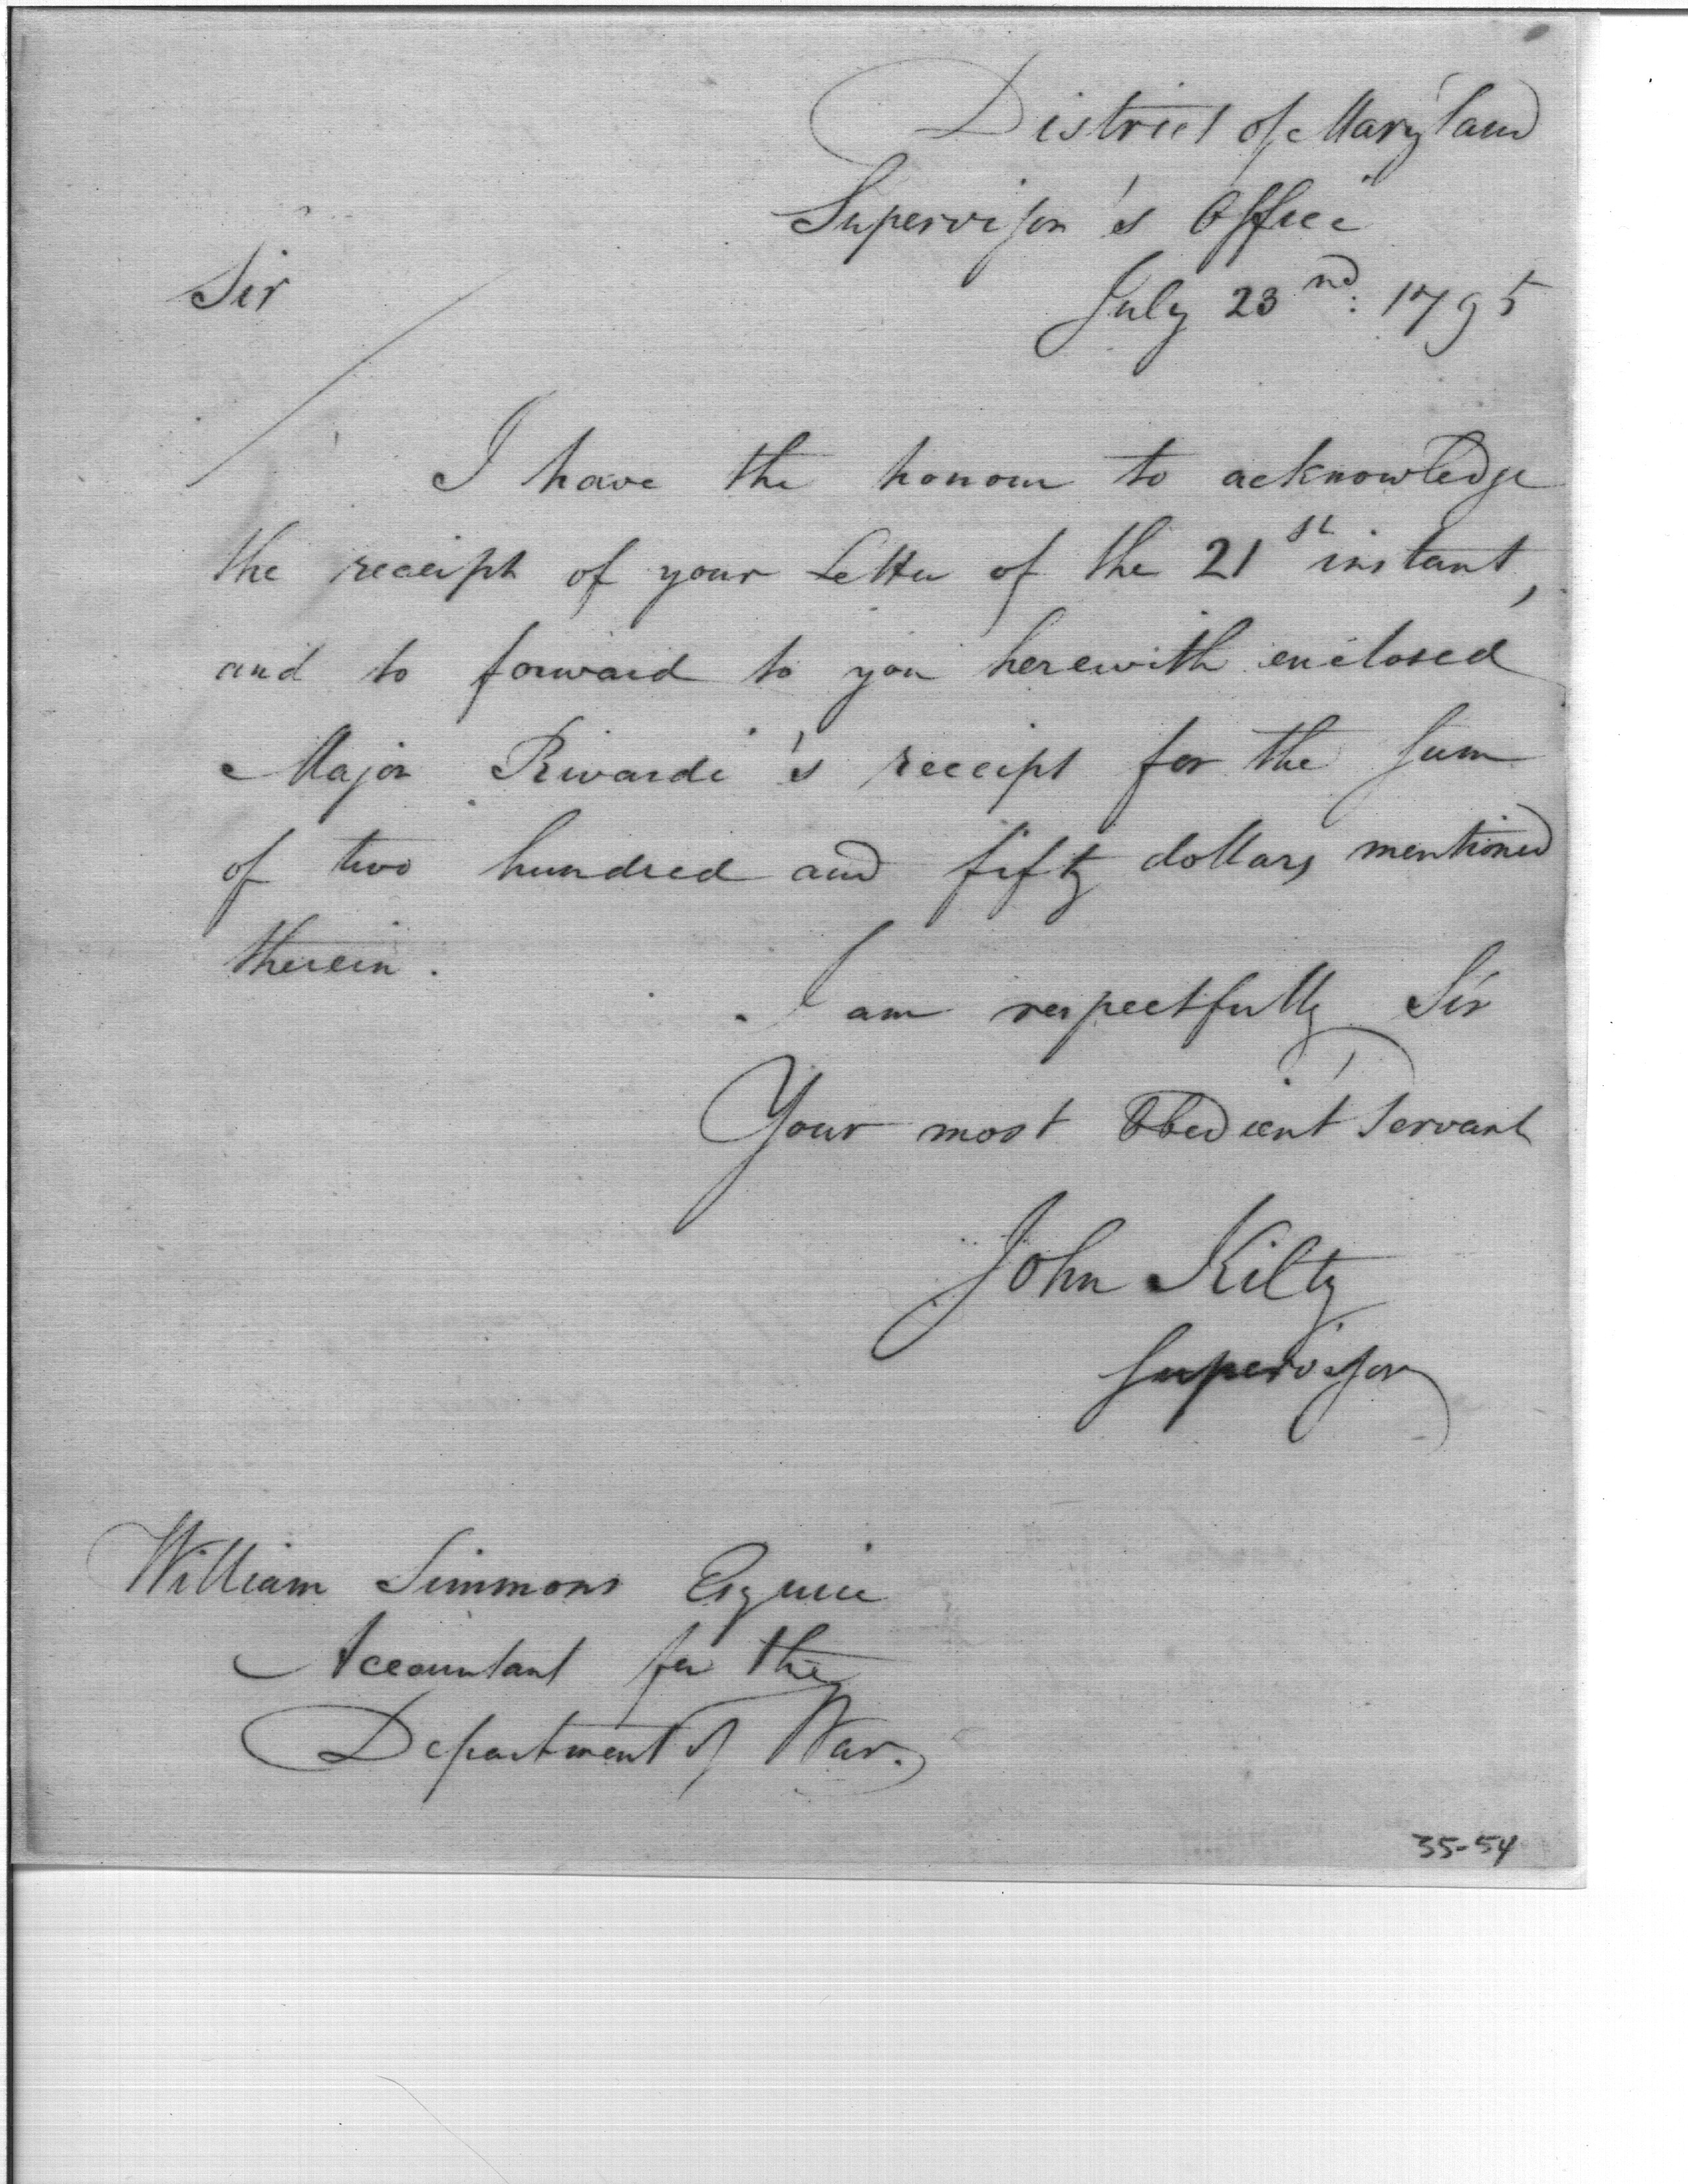 District of Maryland
Supervisor's Office
July 23nd: 1795
Sir
I have the honour to acknowledge
the receipt of your Letter of the 21st instant,
and to forward to you herewith enclosed
Major Rivardi's receipt for the sum
of two hundred and fifty dollars mentioned
therein.
I am respectfully Sir
Your most Obedient Servant
John Kilty
Supervisor
William Simmons Esquire
Accountant for the
Department of War.
35-54